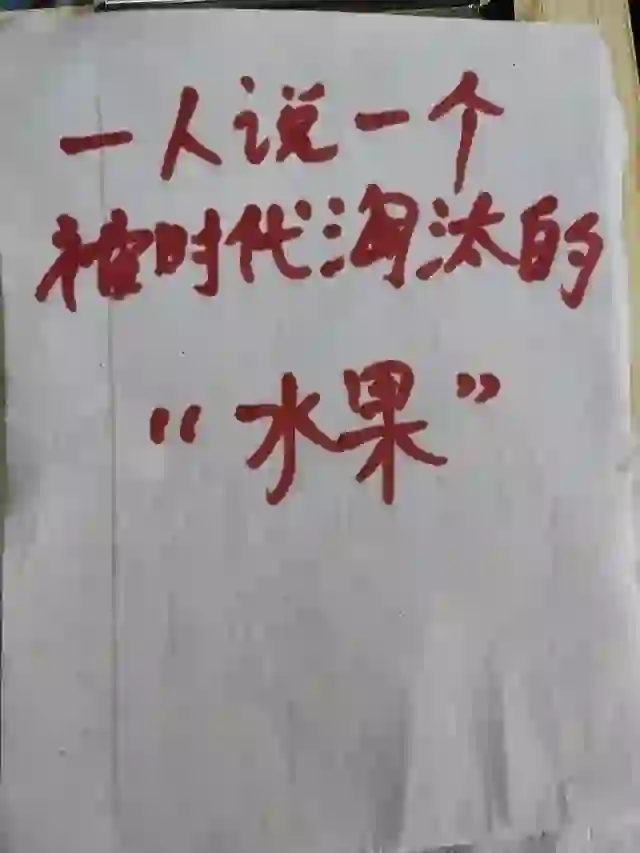 一人说一个
被时代淘汰的
“水果”